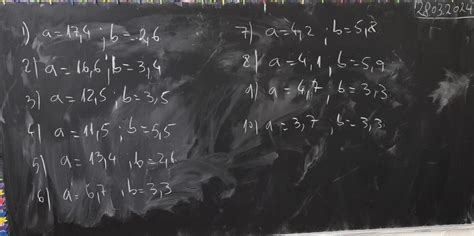 28.03.2024
1) a=17,4 ; b=2,6
2) a=16,6 ; b=3,4
3) a=12,5 ; b=3,5
4) a=11,5 ; b=5,5
5) a=13,4 , b=2,6
6) a=6,7 , b=3,3
7) a=4,2 , b=5,8
8) a=4,1 , b=5,9
9) a=4,7 , b=3,3
10) a=3,7 , b=3,3